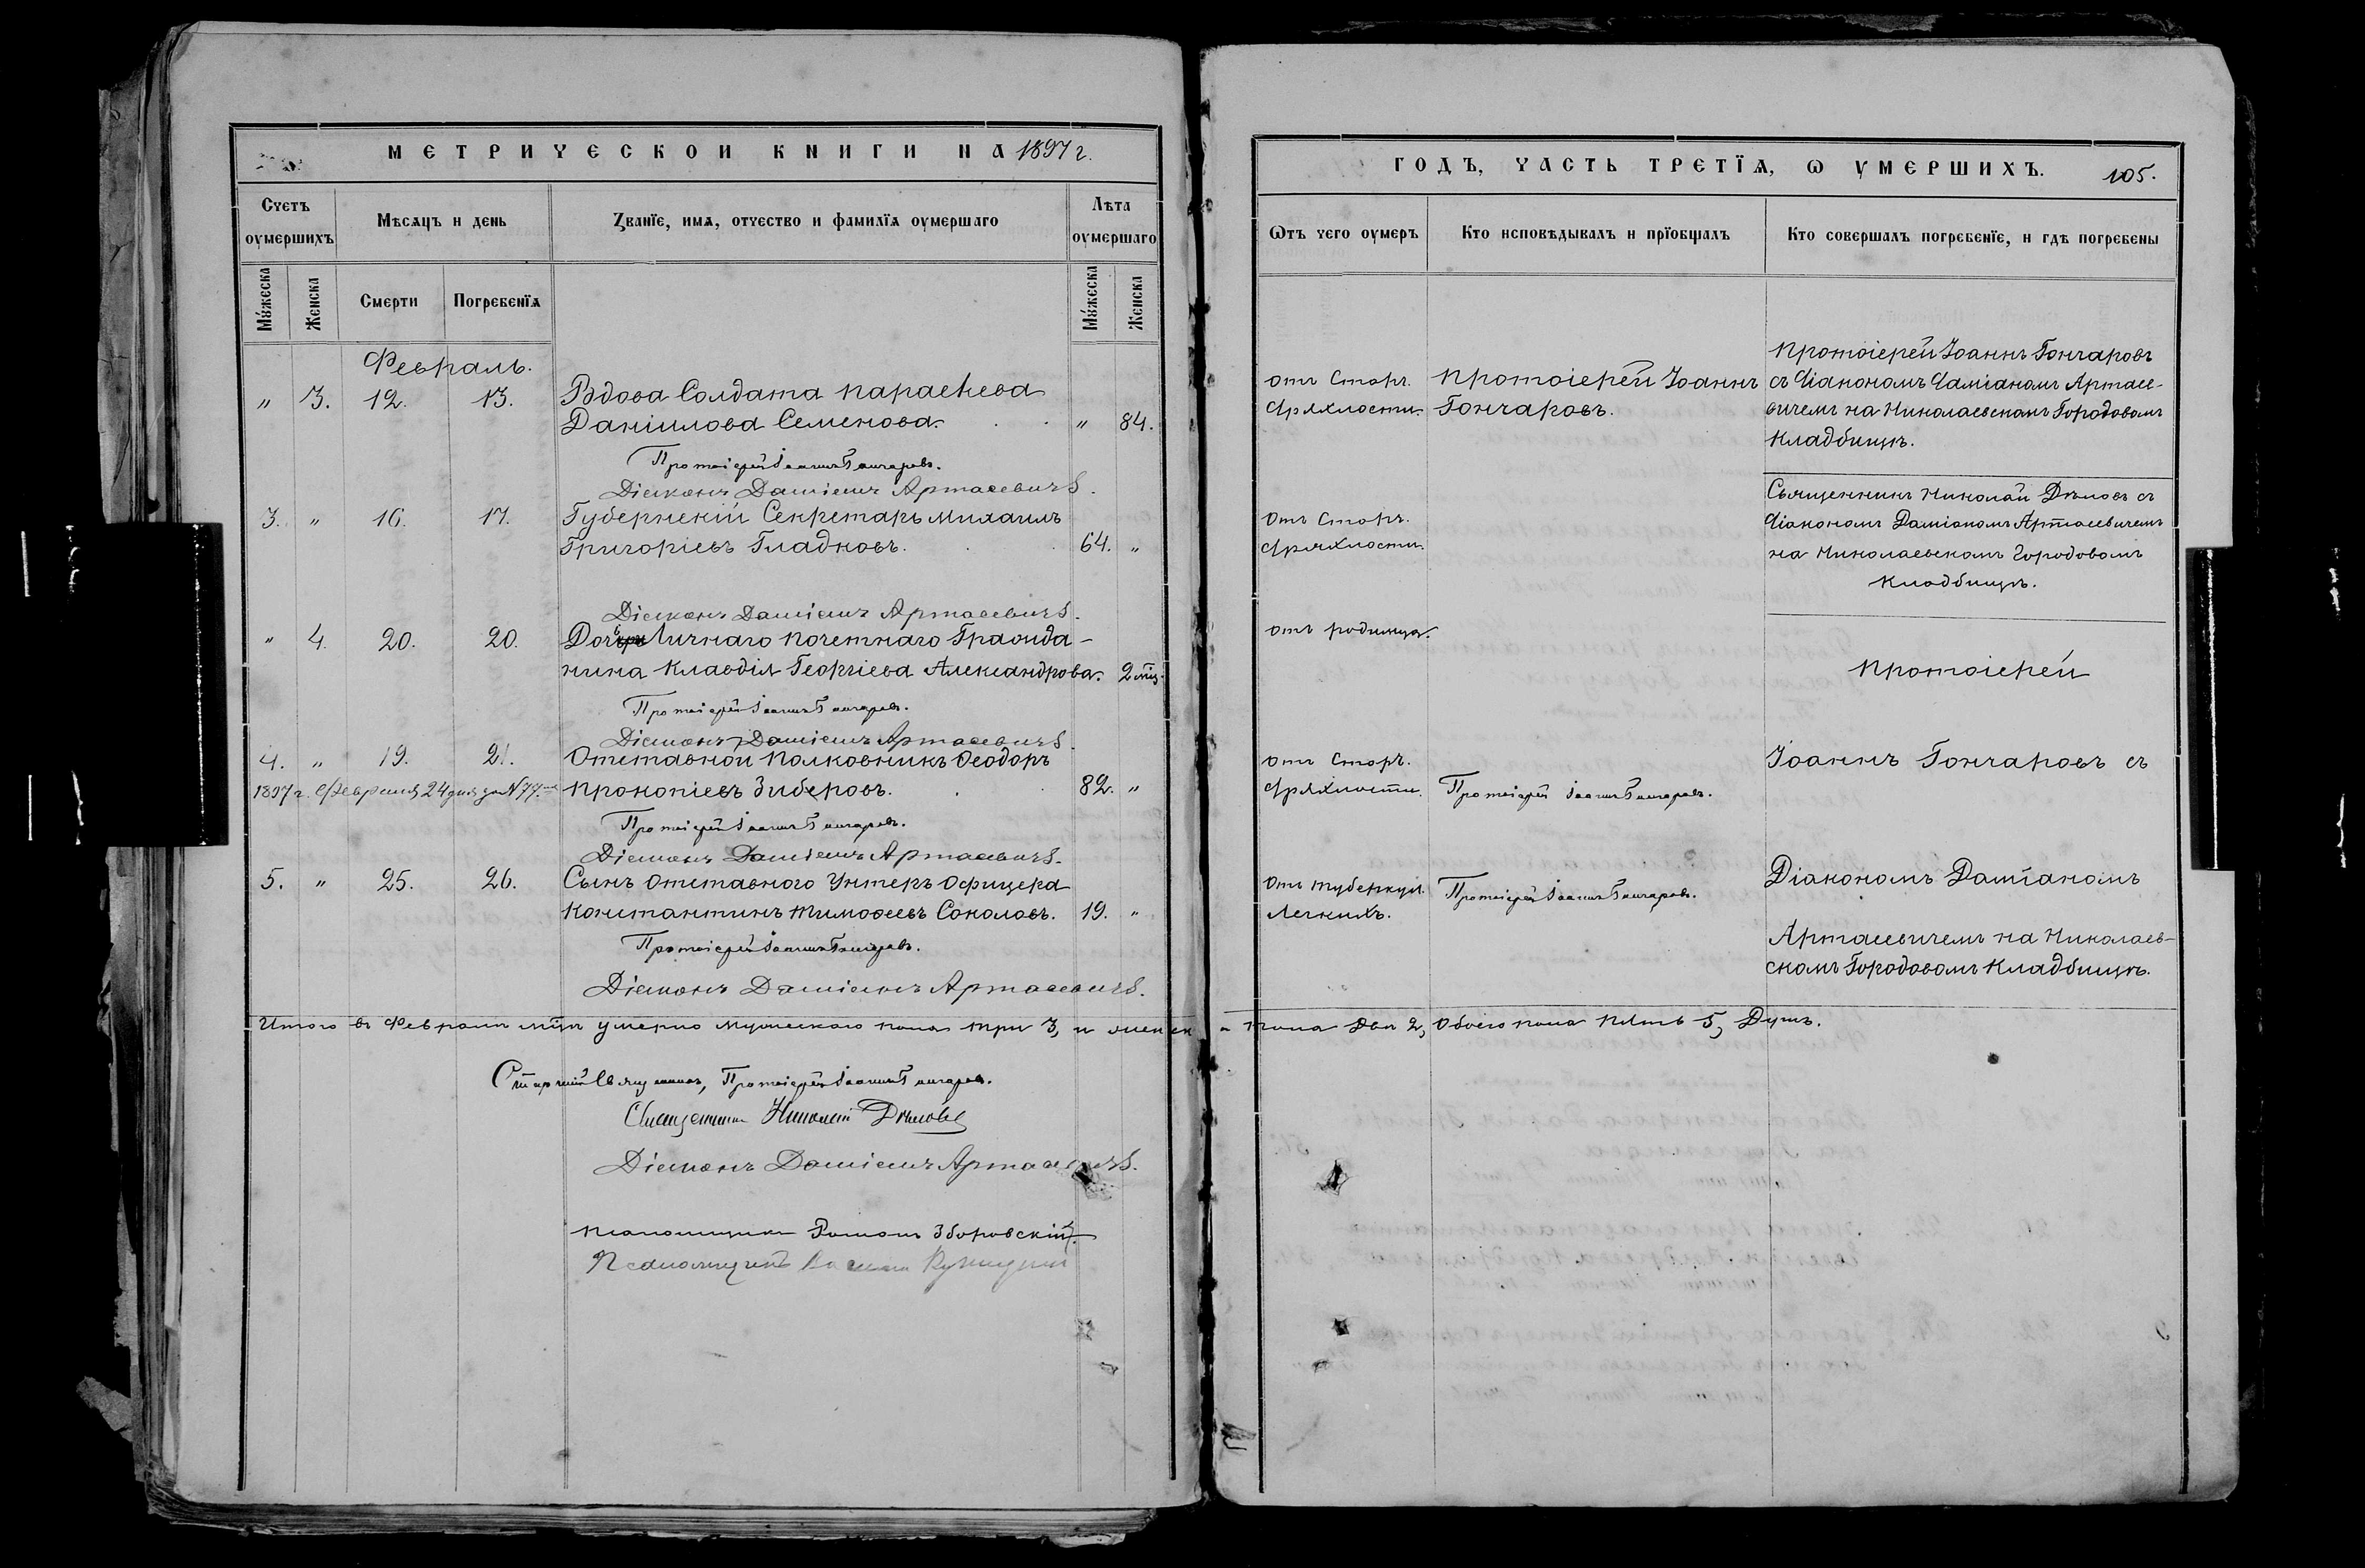 МЕТРИЧЕСКОЙ КНИГИ НА 1897 г.
Счетъ оумершихъ
Мѣсѧцъ и день
Званїе, имѧ, отчество и фамилїѧ оумершаго
Лѣта оумершаго
Мꙋжеска
Женска
Смерти
Погребенїѧ
Мꙋжеска
Женска
Февраль.
" 3. 12. 13. Вдова Солдата Параскева
Даніилова Семенова. " 84.
Протоіерей Іоаннъ Гончаровъ.
Діаконъ Даміанъ Артасевичъ.
3. " 16. 17. Губернскій Секретарь Михаилъ
Григоріевъ Гладковъ. 64. "
Діаконъ Даміанъ Артасевичъ.
" 4. 20. 20. Дочь Личнаго Почетнаго Гражда-
нина Клавдія Георгіева Александрова. 2 мц.
Протоіерей Іоаннъ Гончаровъ.
Діаконъ Даміанъ Артасевичъ.
4. " 19. 21. Отставной Полковникъ Ѳеодоръ
1897 г. Февраля 24 дня за № 77. Прокопіевъ Зиберовъ. 82. "
Протоіерей Іоаннъ Гончаровъ.
Діаконъ Даміанъ Артасевичъ.
5. " 25. 26. Сынъ отставного Унтеръ Офицера
Константинъ Тимоѳеевъ Соколовъ. 19. "
Протоіерей Іоаннъ Гончаровъ.
Діаконъ Даміанъ Артасевичъ.
Итого въ Февралѣ мцѣ умерло мужескаго пола три 3, и женск
Старшій Священникъ, Протоіерей Іоаннъ Гончаровъ.
Священникъ Николай Дѣловъ
Діаконъ Даміанъ Артасевичъ.
Псаломщикъ Романъ Зборовскій.
Псаломщикъ
ГОДЪ, ЧАСТЬ ТРЕТЇѦ, Ѡ УМЕРШИХЪ. 105.
Ѿтъ чего оумеръ
Кто исповѣдывалъ и прїобщалъ
Кто совершалъ погребенїе, и гдѣ погребены
отъ Старч.
дряхлости.
Протоіерей Іоаннъ
Гончаровъ.
Протоіерей Іоаннъ Гончаровъ
съ Діакономъ Даміаномъ Артасе-
вичемъ на Николаевскомъ Городовомъ
Кладбищѣ.
отъ Старч.
дряхлости.
Священникъ Николай Дѣловъ съ
Діакономъ Даміаномъ Артасевичемъ
на Николаевскомъ Городовомъ
Кладбищѣ.
отъ родимца.
Протоіерей
отъ Старч.
дряхлости.
Протоіерей Іоаннъ Гончаровъ.
Іоаннъ Гончаровъ съ
отъ туберкул.
Легкихъ.
Протоіерей Іоаннъ Гончаровъ.
Діакономъ Даміаномъ
Артасевичемъ на Николаев-
скомъ Городовомъ Кладбищѣ.
а пола два 2, обоего пола пять 5, Душъ.